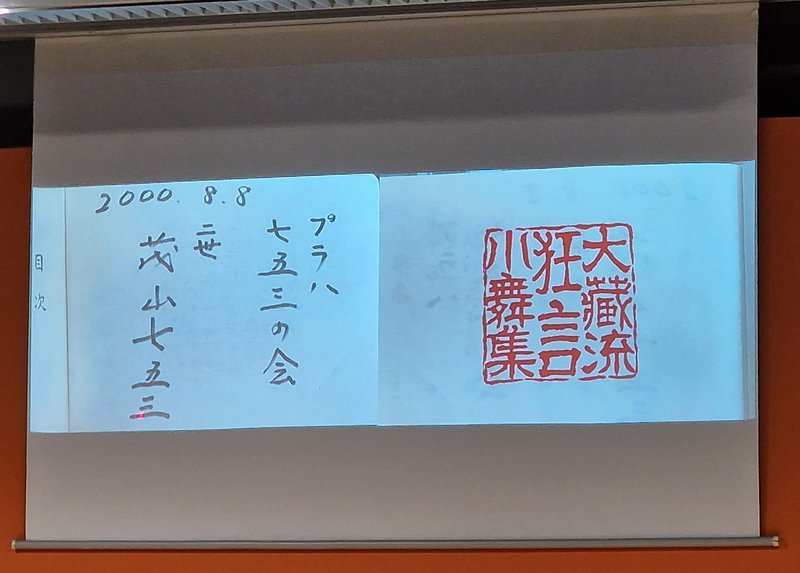 大藏流
狂言
小舞集
2000.8.8
プラハ
七五三の会
二世
茂山七五三
目次